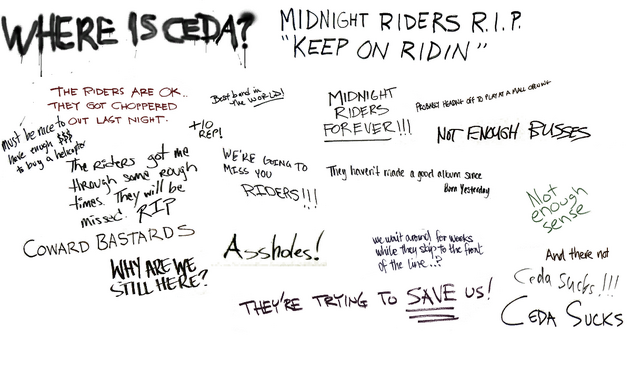 WHERE IS CEDA?
MIDNIGHT RIDERS R.I.P.
"KEEP ON RIDIN"
THE RIDERS ARE OK..
THEY GOT CHOPPERED
OUT LAST NIGHT.
must be nice to
have enough $$$
to buy a helicopter
+10
REP!
Best band in
the WORLD!
MIDNIGHT
RIDERS
FOREVER!!!
PROBABLY HEADING OFF TO PLAY AT A MALL OR
NOT ENOUGH BUSSES
The riders got me
through some rough
times. They will be
missed! RIP
WE'RE GOING TO
MISS YOU
RIDERS!!!
They haven't made a good album since
Born Yesterday
Not
enough
sense
COWARD BASTARDS
Assholes!
WHY ARE WE
STILL HERE?
we wait around for weeks
while they skip to the front
of the line..?
And there not
Ceda Sucks!!!
THEY'RE TRYING TO SAVE US!
CEDA SUCKS